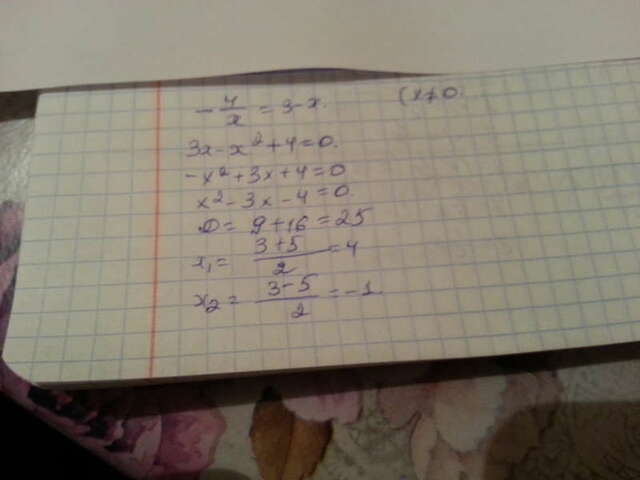 -4/x = 3-x. (x≠0.
3x-x²+4=0.
-x²+3x+4=0
x²-3x-4=0.
D= 9+16=25
x₁= (3+5)/2 =4
x₂= (3-5)/2 =-1